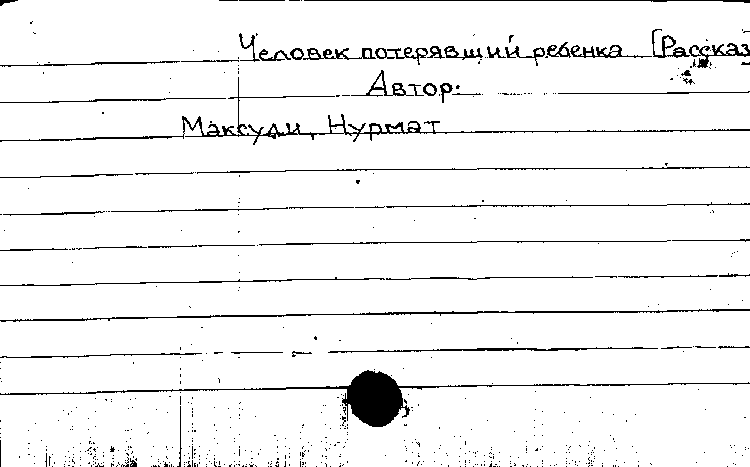 Человек потерявший ребенка [Рассказ]
Автор:
Максуди, Нурмат